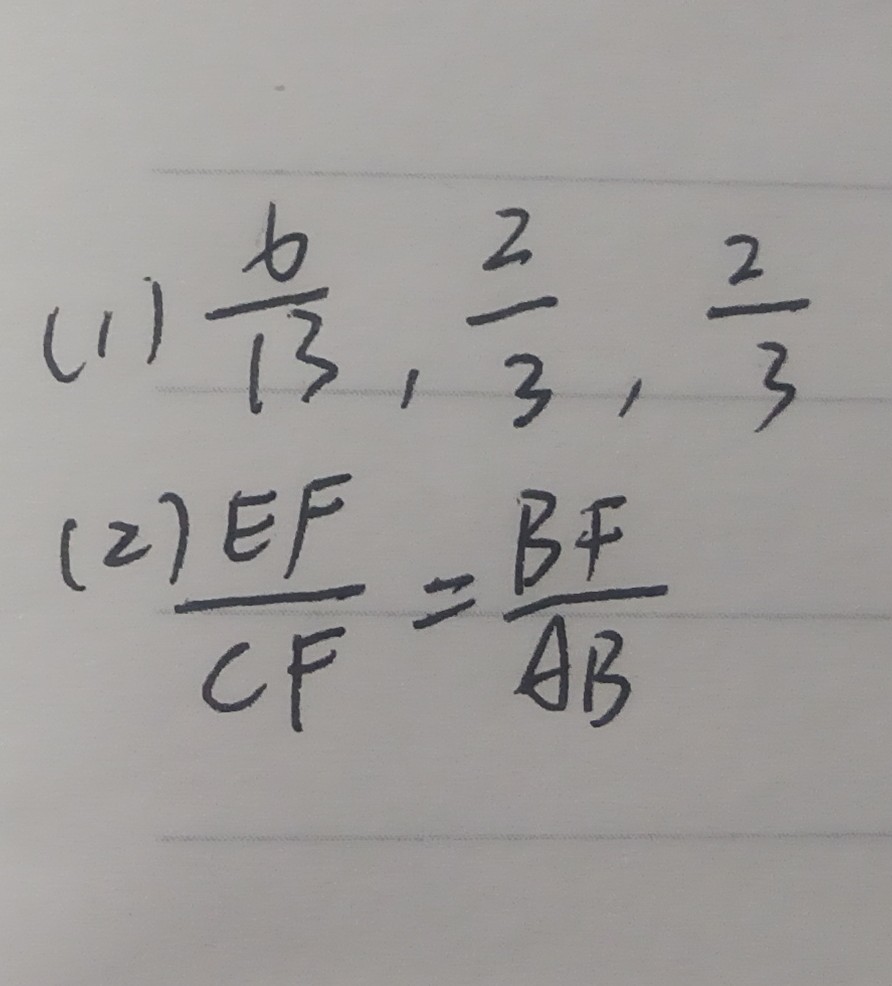 (1) 6/13, 2/3, 2/3
(2) EF/CF = BF/AB